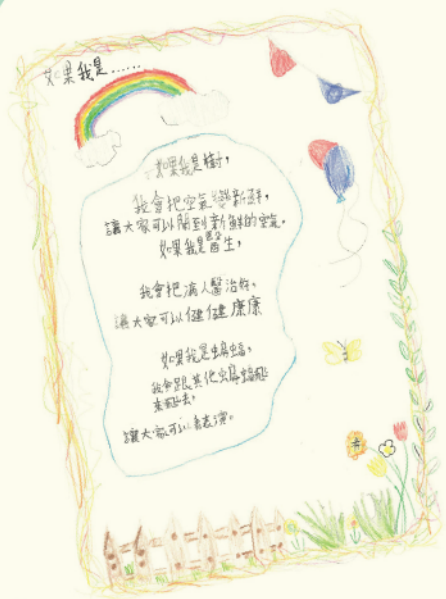 如果我是......
如果我是樹，
我會把空氣變新鮮，
讓大家可以聞到新鮮的空氣。
如果我是醫生，
我會把病人醫治好，
讓大家可以健健康康
如果我是蝙蝠，
我會跟其他蝙蝠飛
來飛去，
讓大家可以看表演。